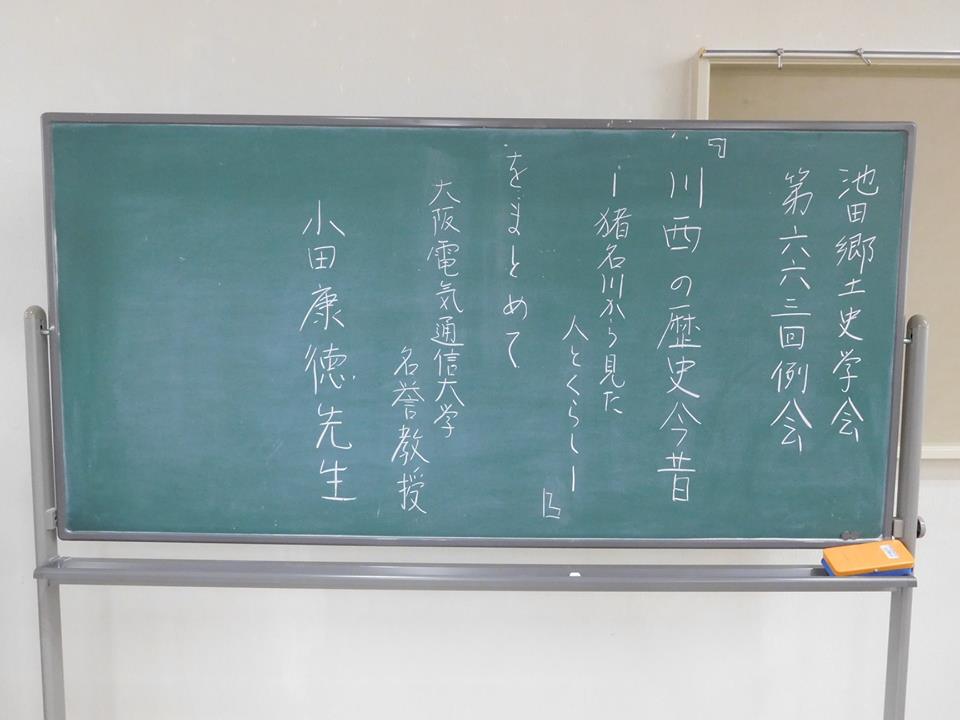 池田郷土史学会
第六六三回例会
『川西の歴史今昔
ー猪名川から見た
人とくらしー』
をまとめて
大阪電気通信大学
名誉教授
小田康徳先生